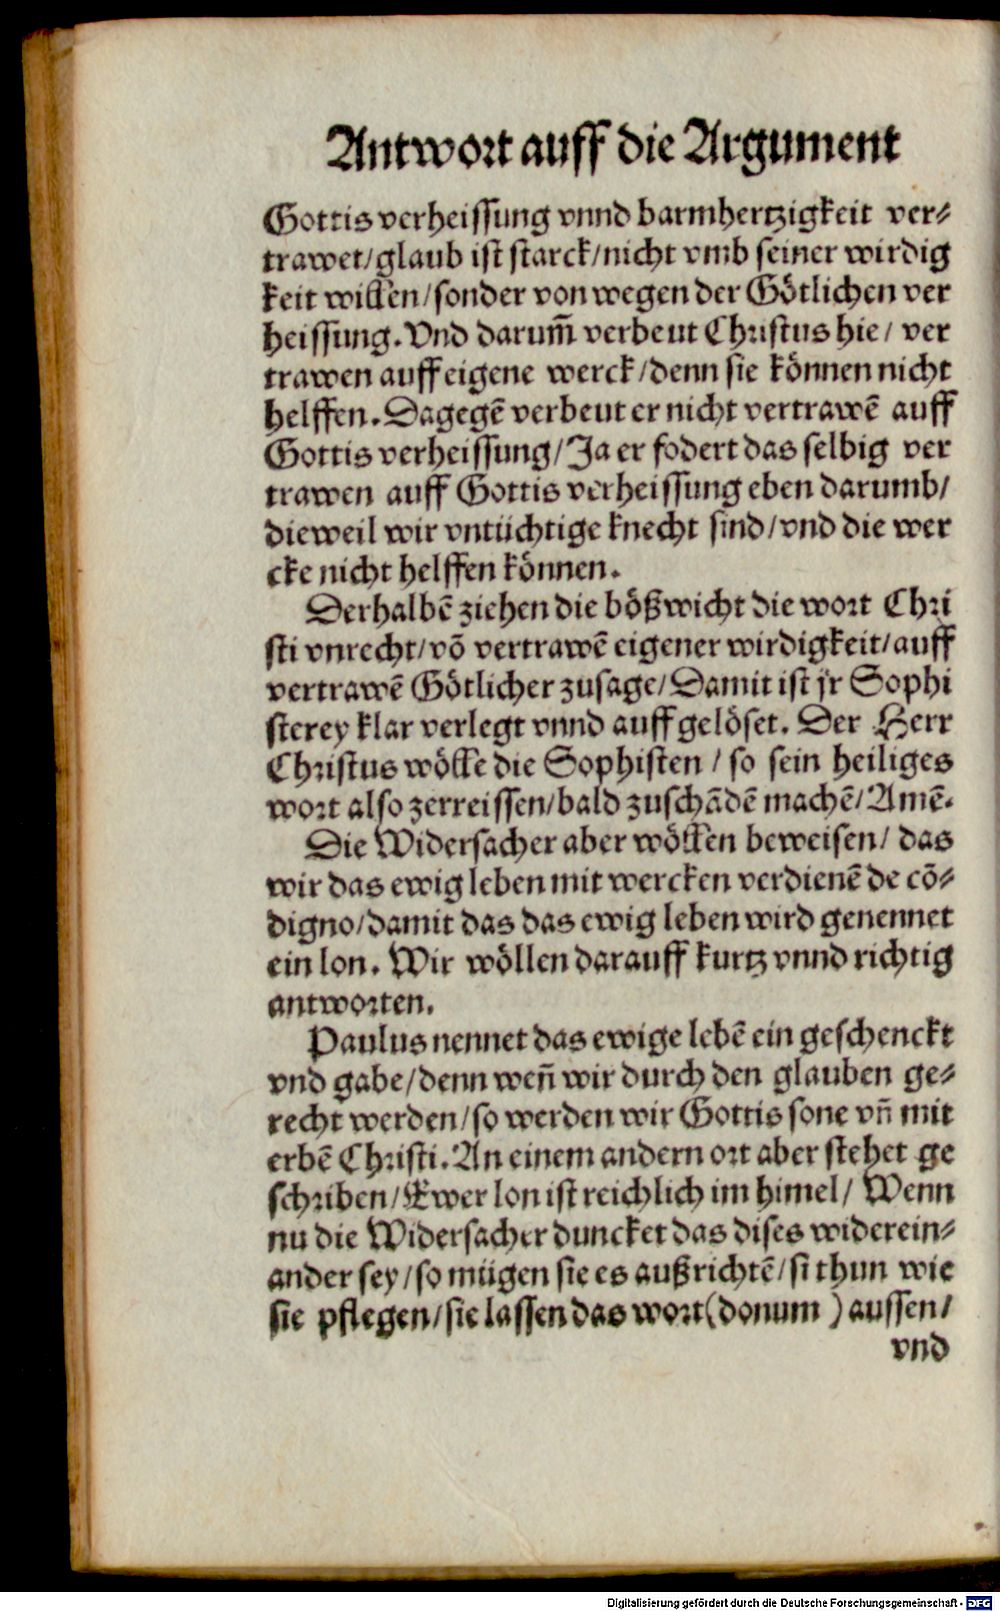 Antwort auff die Argument
Gottis verheissung vnnd barmhertzigkeit ver-
trawet/glaub ist starck/nicht vmb seiner wirdig
keit willen/sonder von wegen der Götlichen ver
heissung. Vnd darum̃ verbeut Christus hie/ ver
trawen auff eigene werck/denn sie können nicht
helffen. Dagegē verbeut er nicht vertrawē auff
Gottis verheissung/Ja er fodert das selbig ver
trawen auff Gottis verheissung eben darumb/
dieweil wir vntüchtige knecht sind/vnd die wer
cke nicht helffen können.
Derhalbē ziehen die bößwicht die wort Chri
sti vnrecht/vō vertrawē eigener wirdigkeit/auff
vertrawē Götlicher zusage/Damit ist jr Sophi
sterey klar verlegt vnnd auff gelöset. Der Herr
Christus wölle die Sophisten / so sein heiliges
wort also zerreissen/bald zuschādē machē/Amē.
Die Widersacher aber wöllen beweisen/ das
wir das ewig leben mit wercken verdienē de cō-
digno/damit das das ewig leben wird genennet
ein lon. Wir wöllen darauff kurtz vnnd richtig
antworten.
Paulus nennet das ewige lebē ein geschenckt
vnd gabe/denn weñ wir durch den glauben ge-
recht werden/so werden wir Gottis sone vñ mit
erbē Christi. An einem andern ort aber stehet ge
schriben/Ewer lon ist reichlich im himel/ Wenn
nu die Widersacher duncket das dises widerein-
ander sey/so mügen sie es außrichtē/si thun wie
sie pflegen/sie lassen das wort(donum ) aussen/
vnd
Digitalisierung gefördert durch die Deutsche Forschungsgemeinschaft - DFG